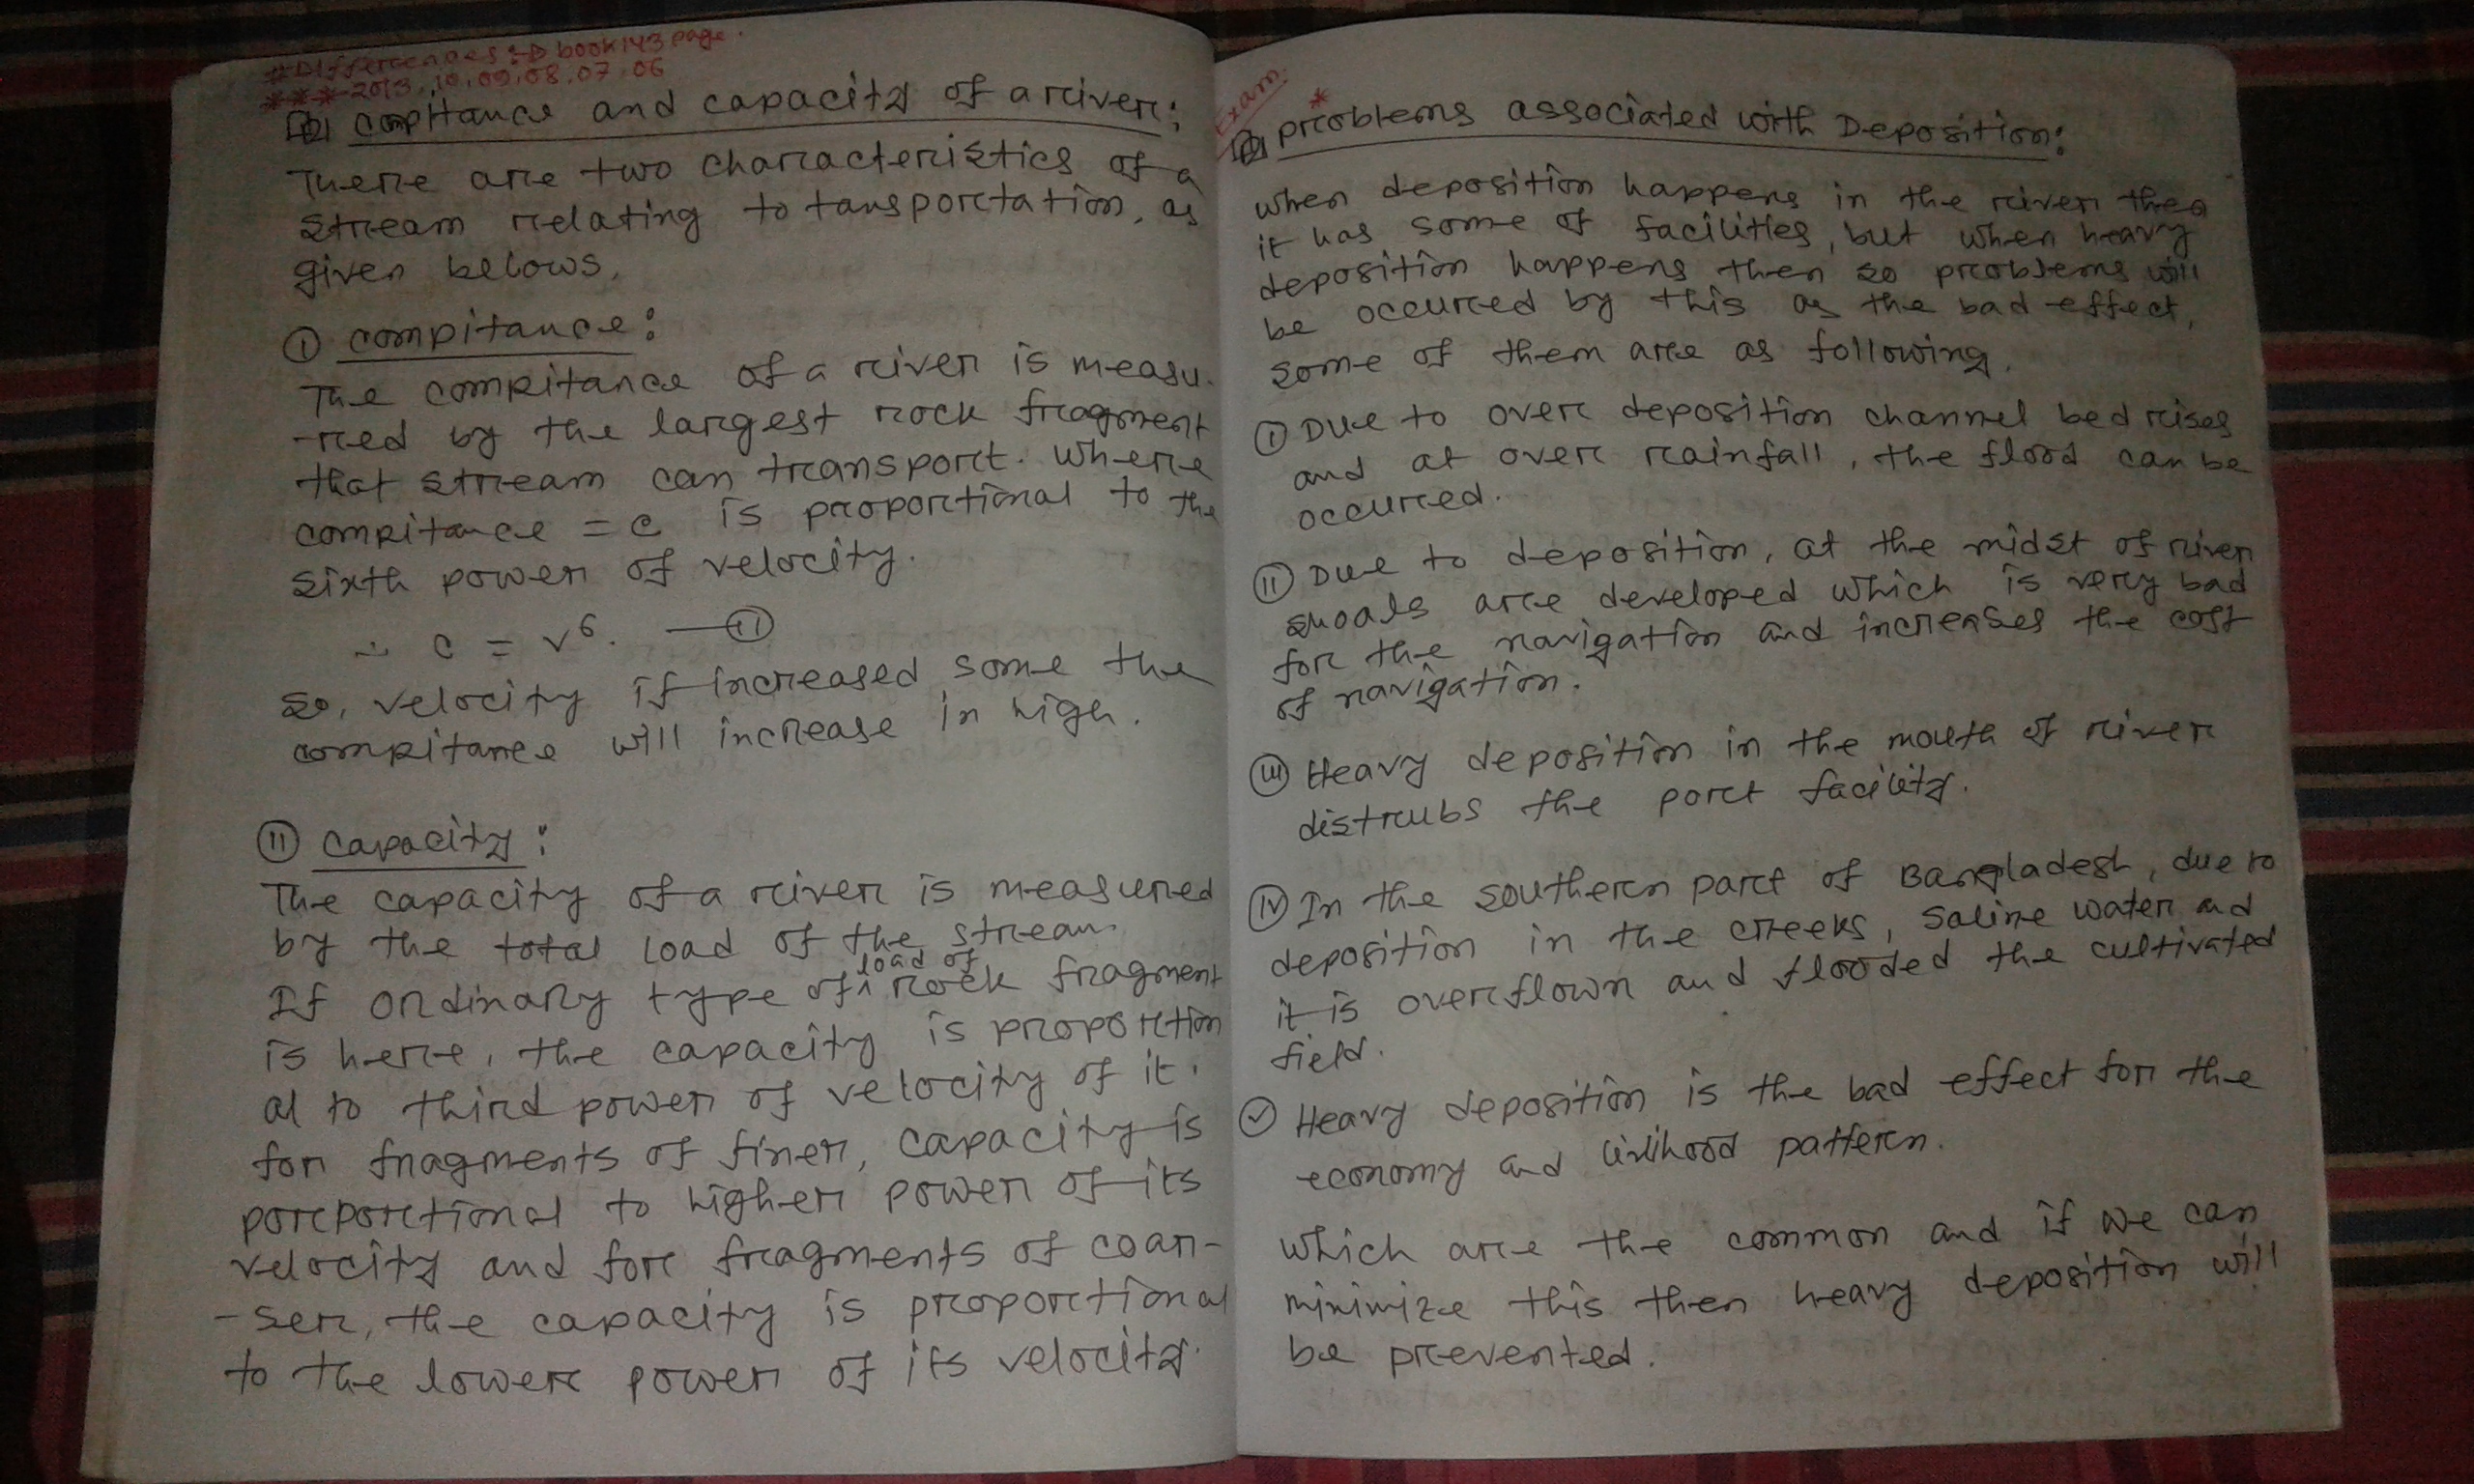 # Differences :-> book 143 page.
*** 2013, 10, 09, 08, 07, 06
compitance and capacity of a river:
There are two characteristics of a
stream relating to tansportation, as
given belows.
(I) compitance:
The compitance of a river is measu-
-red by the largest rock fragment
that stream can transport. Where
compitance = c is proportional to the
sixth power of velocity.
∴ c = v⁶. —(I)
So, velocity if increased some the
compitance will increase in high.
(II) capacity:
The capacity of a river is measured
by the total load of the stream.
If ordinary type of load of rock fragment
is here, the capacity is proportion
al to third power of velocity of it.
for fragments of finer, capacity is
porportional to higher power of its
velocity and for fragments of coar-
-ser, the capacity is proportional
to the lower power of its velocity.
Exam.
* problems associated with Deposition:
when deposition happens in the river then
it has some of facilities, but when heavy
deposition happens then so problems will
be occured by this as the bad effect,
some of them are as following.
(I) Due to over deposition channel bed rises
and at over rainfall, the flood can be
occured.
(II) Due to deposition, at the midst of river
shoals are developed which is very bad
for the navigation and increases the cost
of navigation.
(III) Heavy deposition in the mouth of river
distrubs the port facility.
(IV) In the southern part of Bangladesh, due to
deposition in the creeks, saline water and
it is overflown and flooded the cultivated
field.
(V) Heavy deposition is the bad effect for the
economy and livlihood pattern.
which are the common and if we can
minimize this then heavy deposition will
be prevented.